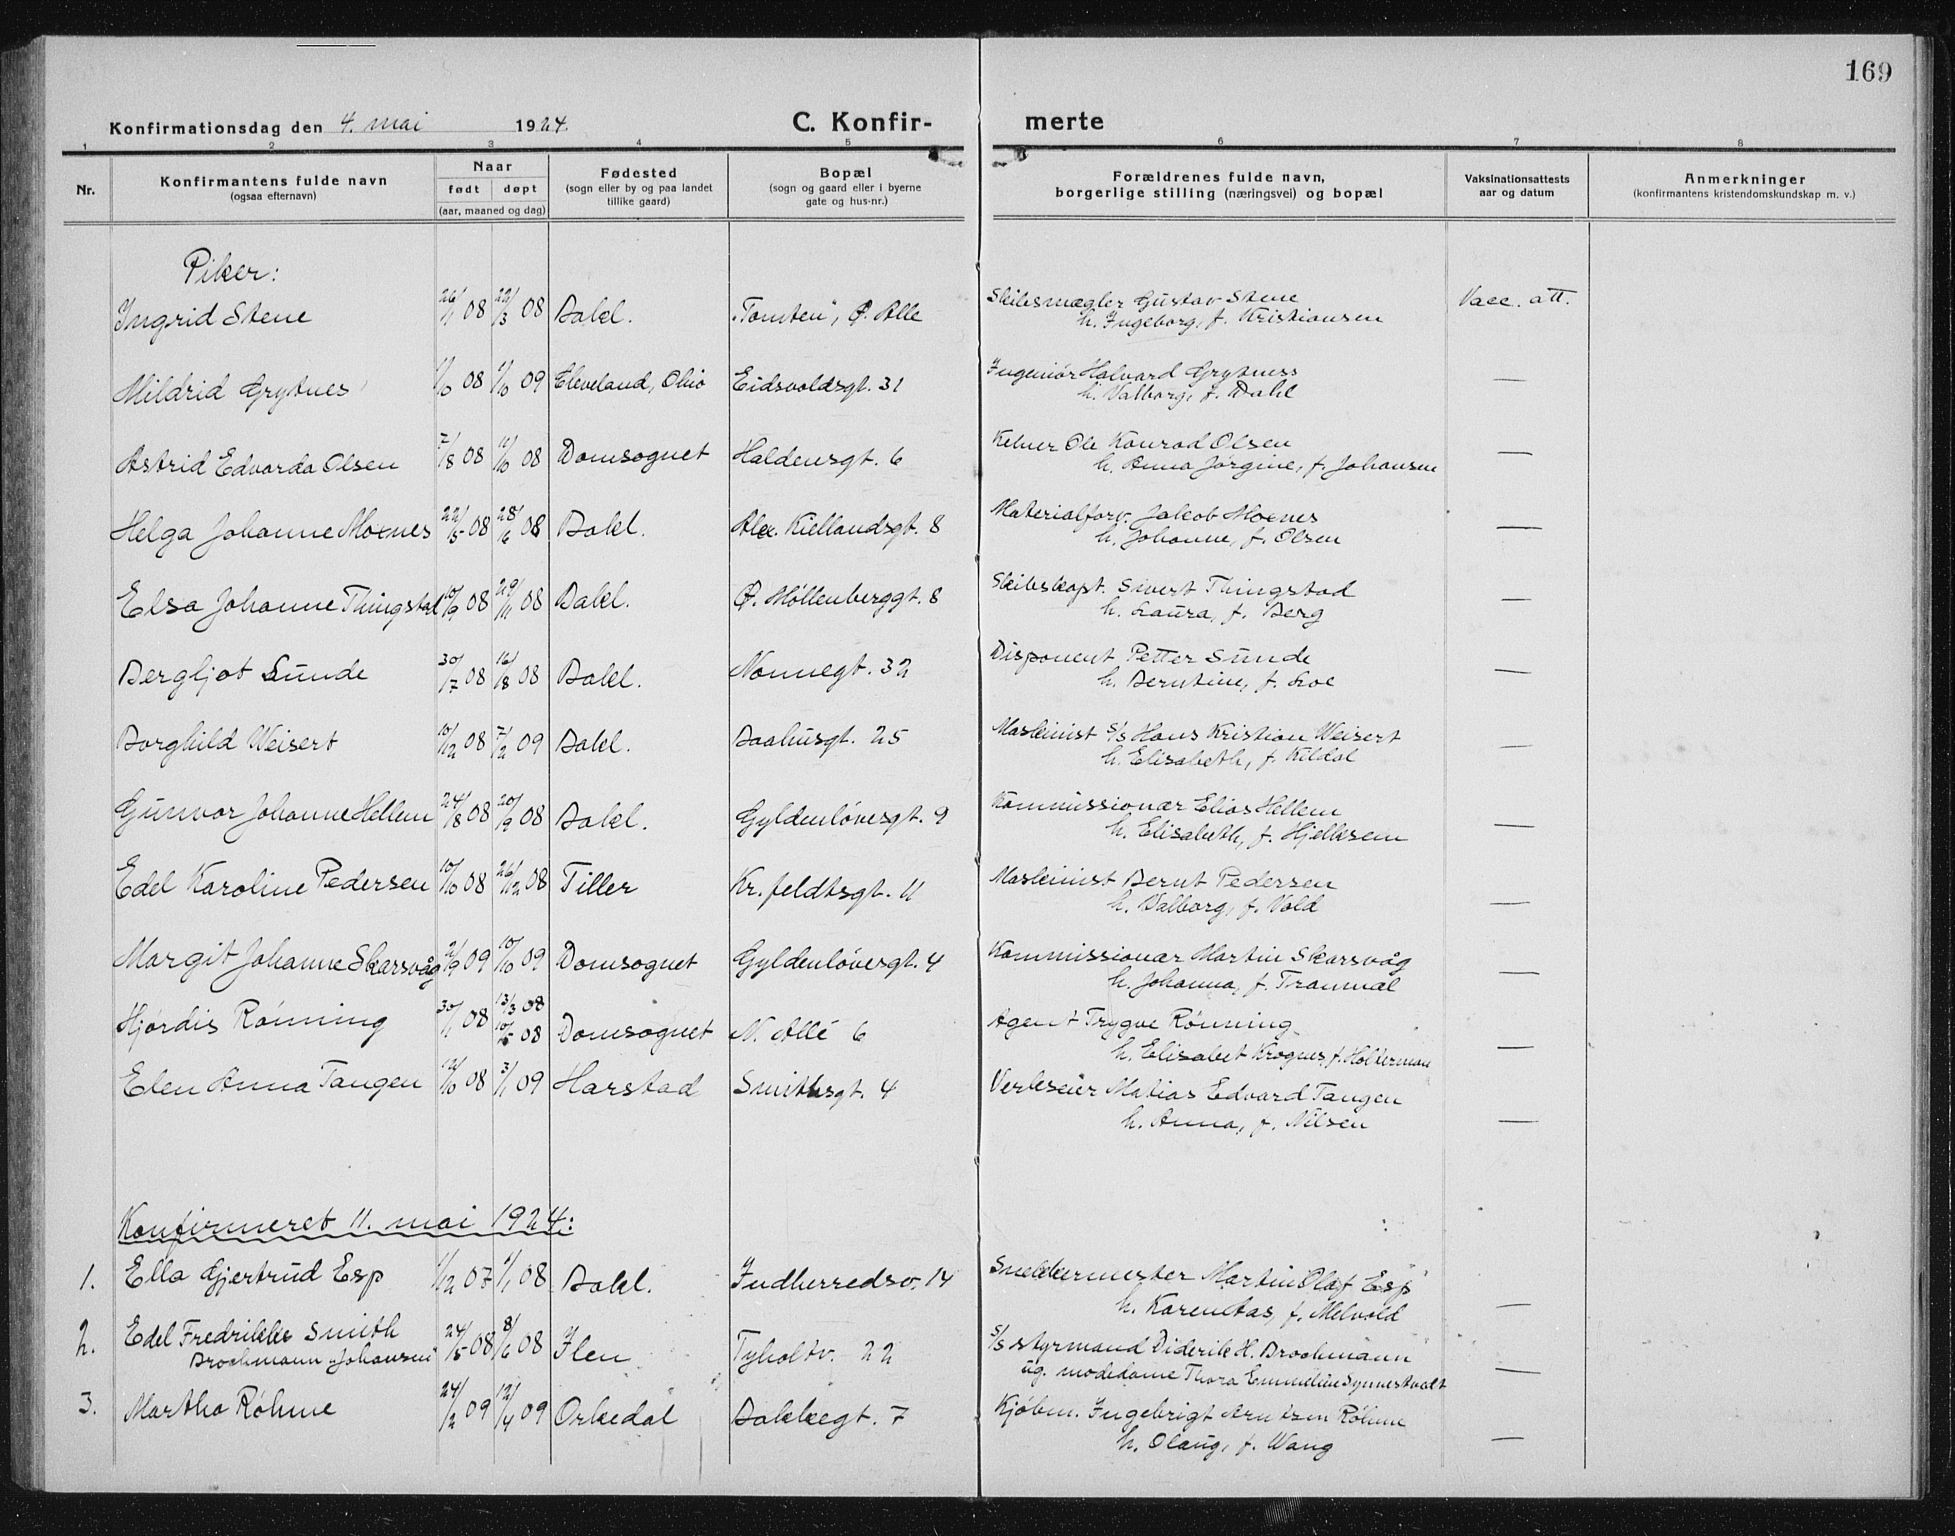 169
Konfirmationsdag den 4. mai 1924. C. Konfirmerte
1 2 3 4 5 6 7 8
Nr. Konfirmantens fulde navn (ogsaa efternavn) Naar født døpt (aar, maaned og dag) Fødested (sogn eller by og paa landet tillike gaard) Bopæl (sogn og gaard eller i byerne gate og hus-nr.) Forældrenes fulde navn, borgerlige stilling (næringsvei) og bopæl Vaksinationsattests aar og datum Anmerkninger (konfirmantens kristendomskundskap m. v.)
Piker:
Ingrid Stene 26/1 08 22/3 08 Bakl. "Tomten", Ø. Alle Skibsmægler Gustav Stene Vacc. att.
h. Ingeborg, f. Kristiansen
Mildrid Grytnes 08 09 Cleveland, Ohio Eidsvoldsgt. 31 Ingeniør Halvard Grytness —
h. Valborg, f. Dahl
Astrid Edvarda Olsen 7/8 08 11/10 08 Domsognet Haldensgt. 6 Kelner Ole Konrad Olsen —
h. Anna Jørgine, f. Johansen
Helga Johanne Moxnes 22/5 08 28/6 08 Bakl. Alex. Kiellandsgt. 8 Materialforv. Jakob Moxnes —
h. Johanne, f. Olsen
Elsa Johanne Thingstad 10/9 08 29/11 08 Bakl. Ø. Möllenberggt. 8 Skibskapt. Sivert Thingstad —
h. Laura, f. Berg
Bergljot Sunde 30/7 08 16/8 08 Bakl. Nonnegt. 32 Disponent Petter Sunde —
h. Berntine, f. Loe
Borghild Weisert 10/12 08 7/2 09 Bakl. Baahusgt. 25 Maskinist s/s Hans Kristian Weisert —
h. Elisabeth, f. Kildal
Gunvor Johanne Hellem 24/8 08 20/9 08 Bakl. Gyldenløvesgt. 9 Kommissionær Elias Hellem —
h. Elisabeth, f. Hjelksem
Edel Karoline Pedersen 10/10 08 26/12 08 Tiller Kr. feldtsgt. 11 Maskinist Bernt Pedersen —
h. Valborg, f. Vold
Margit Johanne Skarsvåg 2/9 09 10/10 09 Domsognet Gyldenløvesgt. 4 Kommissionær Martin Skarsvåg —
h. Johanna, f. Tranmæl
Hjørdis Rønning 30/1 08 13/3 08 10/5 08 Domsognet N. Allé 6 Agent Trygve Rønning —
h. Elisabet Krognes, f. Holterman
Elen Anna Tangen 12/10 08 3/1 09 Harstad Smithsgt. 4 Verkseier Matias Edvard Tangen —
h. Anna, f. Nilsen
Konfirmeret 11. mai 1924:
1. Ella Gjertrud Esp 1/12 07 1/1 08 Bakl. Indherredsv. 14 Snekkermester Martin Olaf Esp —
h. Karenitas, f. Melvold
2. Edel Fredrikke Smith 24/5 08 8/6 08 Ilen Tyholtv. 22 s/s styrmand Diderik H. Brochmann —
Brochmann Johansen ug. modedame Thora Emmeline Synnestvedt
3. Martha Røhme 24/2 09 12/4 09 Orkedal Bakkegt. 7 Kjøbm. Ingebrigt Arntsen Røhme —
h. Olaug, f. Wang